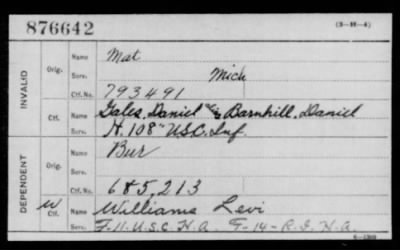 876642 (3—H—4)
INVALID
Orig. Name Mat
Serv. Mich
Ctf. No. 793491
Ctf. Name Gales, Daniel Barnhill, Daniel
Serv. H. 108" U.S.C. Inf.
DEPENDENT
Orig. Name Bur
Serv.
Ctf. No. 685,213
W Ctf. Name Williams Levi
Serv. F. 11. U.S.C. H.A. F-14-R.I. H.A.